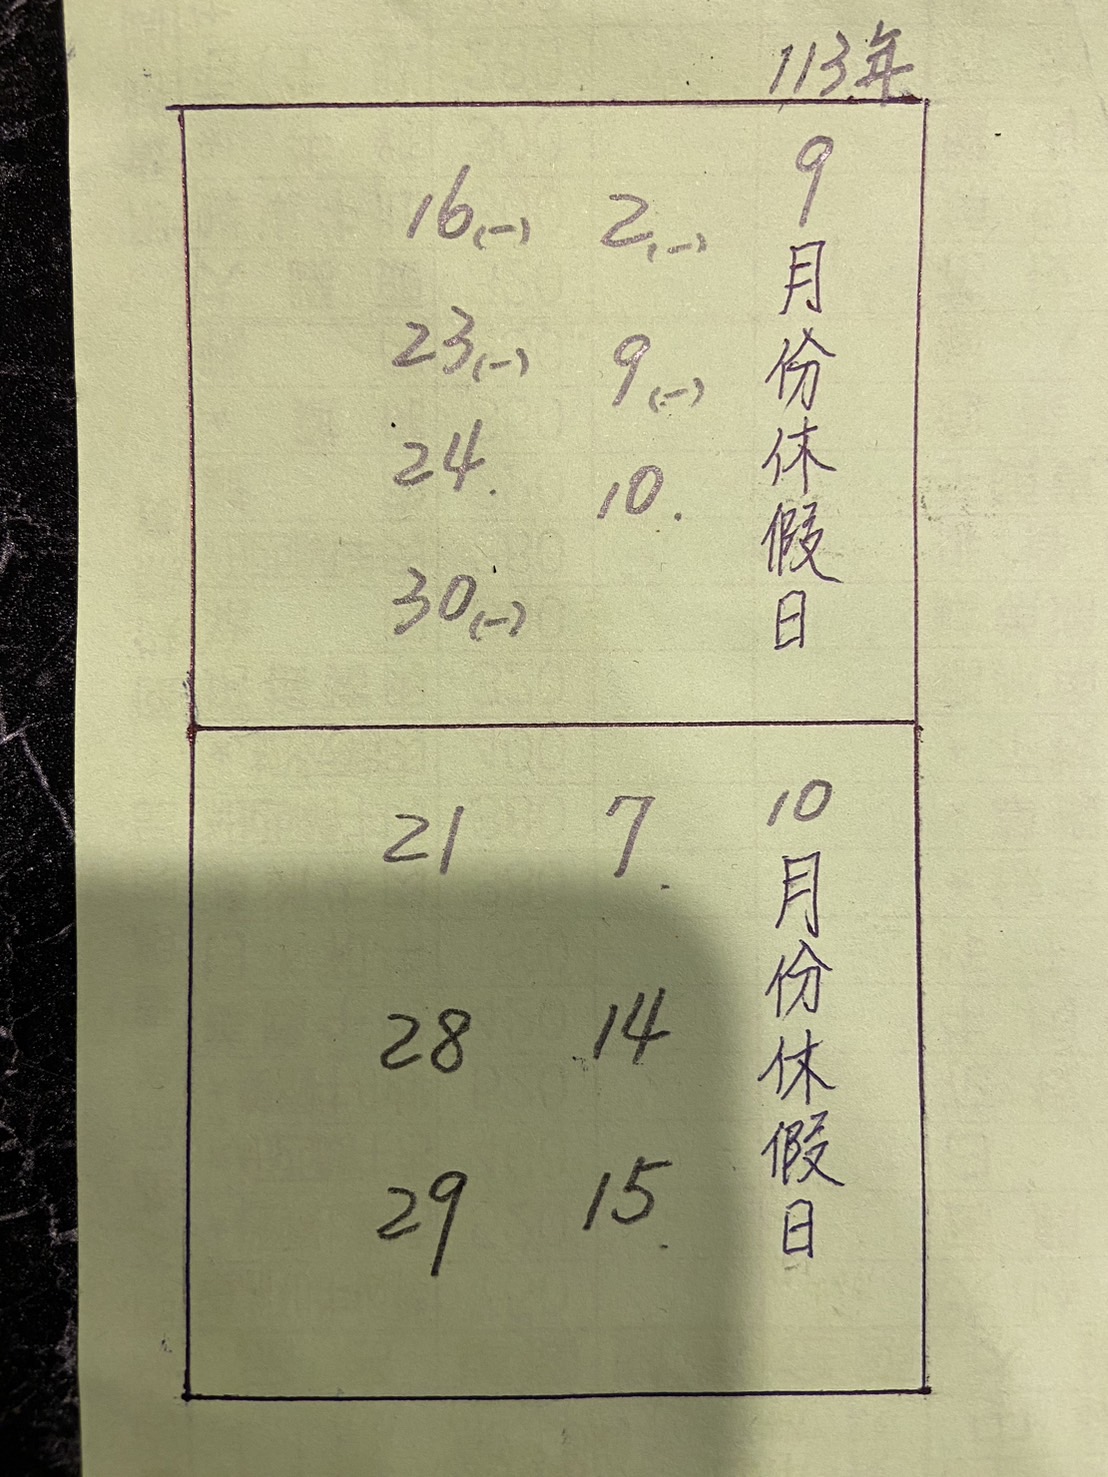 113年
9月份休假日
2(一)
9(一)
10.
16(一)
23(一)
24.
30(一)
10月份休假日
7.
14
15.
21
28
29